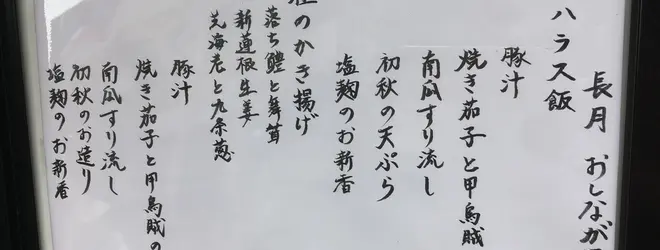 長月 おしなが
ハラス飯
豚汁
焼き茄子と甲烏賊
南瓜すり流し
初秋の天ぷら
塩麹のお新香
のかき揚げ
落ち鱧と舞茸
新蓮根生姜
芝海老と九条葱
豚汁
焼き茄子と甲烏賊の
南瓜すり流し
初秋のお造り
塩麹のお新香